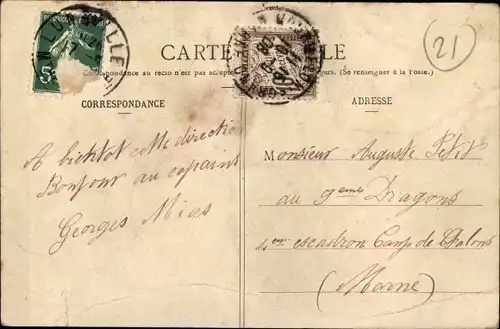 CARTE POSTALE
Correspondance au recto n'est pas acceptée (Se renseigner à la Poste.)
21
CORRESPONDANCE
ADRESSE
A bientot cette direction
Bonjour au copains
Georges Mias
Monsieur Auguste Petit
au 9eme Dragons
4em escadron Camp de Chalons
(Marne)